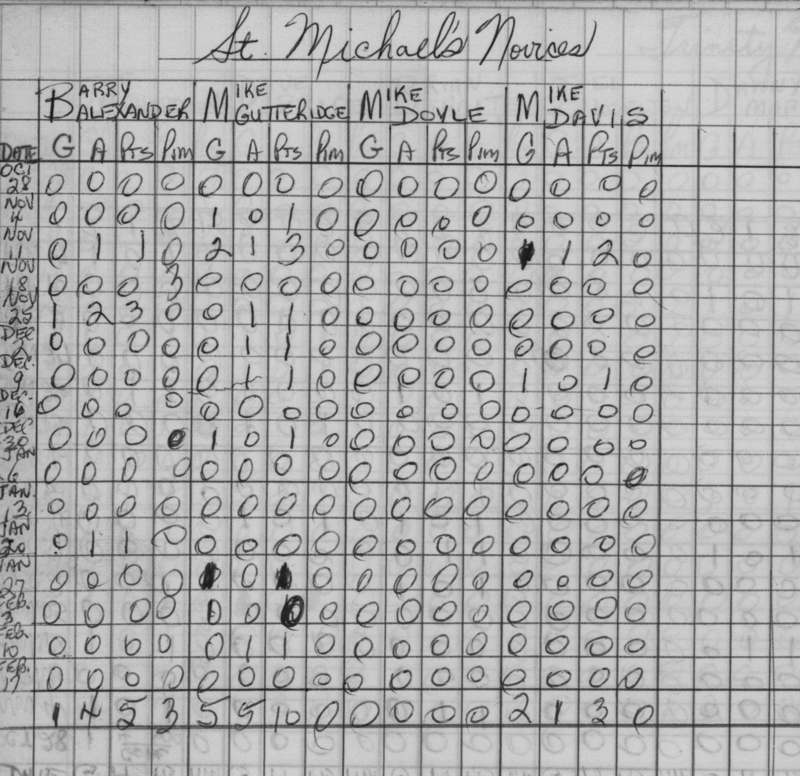 St. Michael's Novices
BARRY ALEXANDER MIKE GUTTERIDGE MIKE DOYLE MIKE DAVIS
DATE G A Pts Pim G A Pts Pim G A Pts Pim G A Pts Pim
OCT 28 0 0 0 0 0 0 0 0 0 0 0 0 0 0 0 0
NOV 4 0 0 0 0 1 0 1 0 0 0 0 0 0 0 0 0
NOV 11 0 1 1 0 2 1 3 0 0 0 0 0 1 1 2 0
NOV 18 0 0 0 3 0 0 0 0 0 0 0 0 0 0 0 0
NOV 25 1 2 3 0 0 1 1 0 0 0 0 0 0 0 0 0
DEC 2 0 0 0 0 0 1 1 0 0 0 0 0 0 0 0 0
DEC. 9 0 0 0 0 0 1 1 0 0 0 0 0 1 0 1 0
DEC. 16 0 0 0 0 0 0 0 0 0 0 0 0 0 0 0 0
DEC 30 0 0 0 0 1 0 1 0 0 0 0 0 0 0 0 0
JAN 6 0 0 0 0 0 0 0 0 0 0 0 0 0 0 0 0
JAN. 13 0 0 0 0 0 0 0 0 0 0 0 0 0 0 0 0
JAN 20 0 1 1 0 0 0 0 0 0 0 0 0 0 0 0 0
JAN 27 0 0 0 0 1 0 1 0 0 0 0 0 0 0 0 0
FEB. 3 0 0 0 0 0 0 0 0 0 0 0 0 0 0 0 0
FEB. 10 0 0 0 0 0 1 1 0 0 0 0 0 0 0 0 0
FEB. 17 0 0 0 0 0 0 0 0 0 0 0 0 0 0 0 0
1 4 5 3 5 5 10 0 0 0 0 0 2 1 3 0